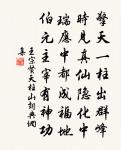 擎天一柱出群峰
時見真仙隱化中
瑞應中都成福地
伯元主宰有神功
王宗天柱山詞典網
集